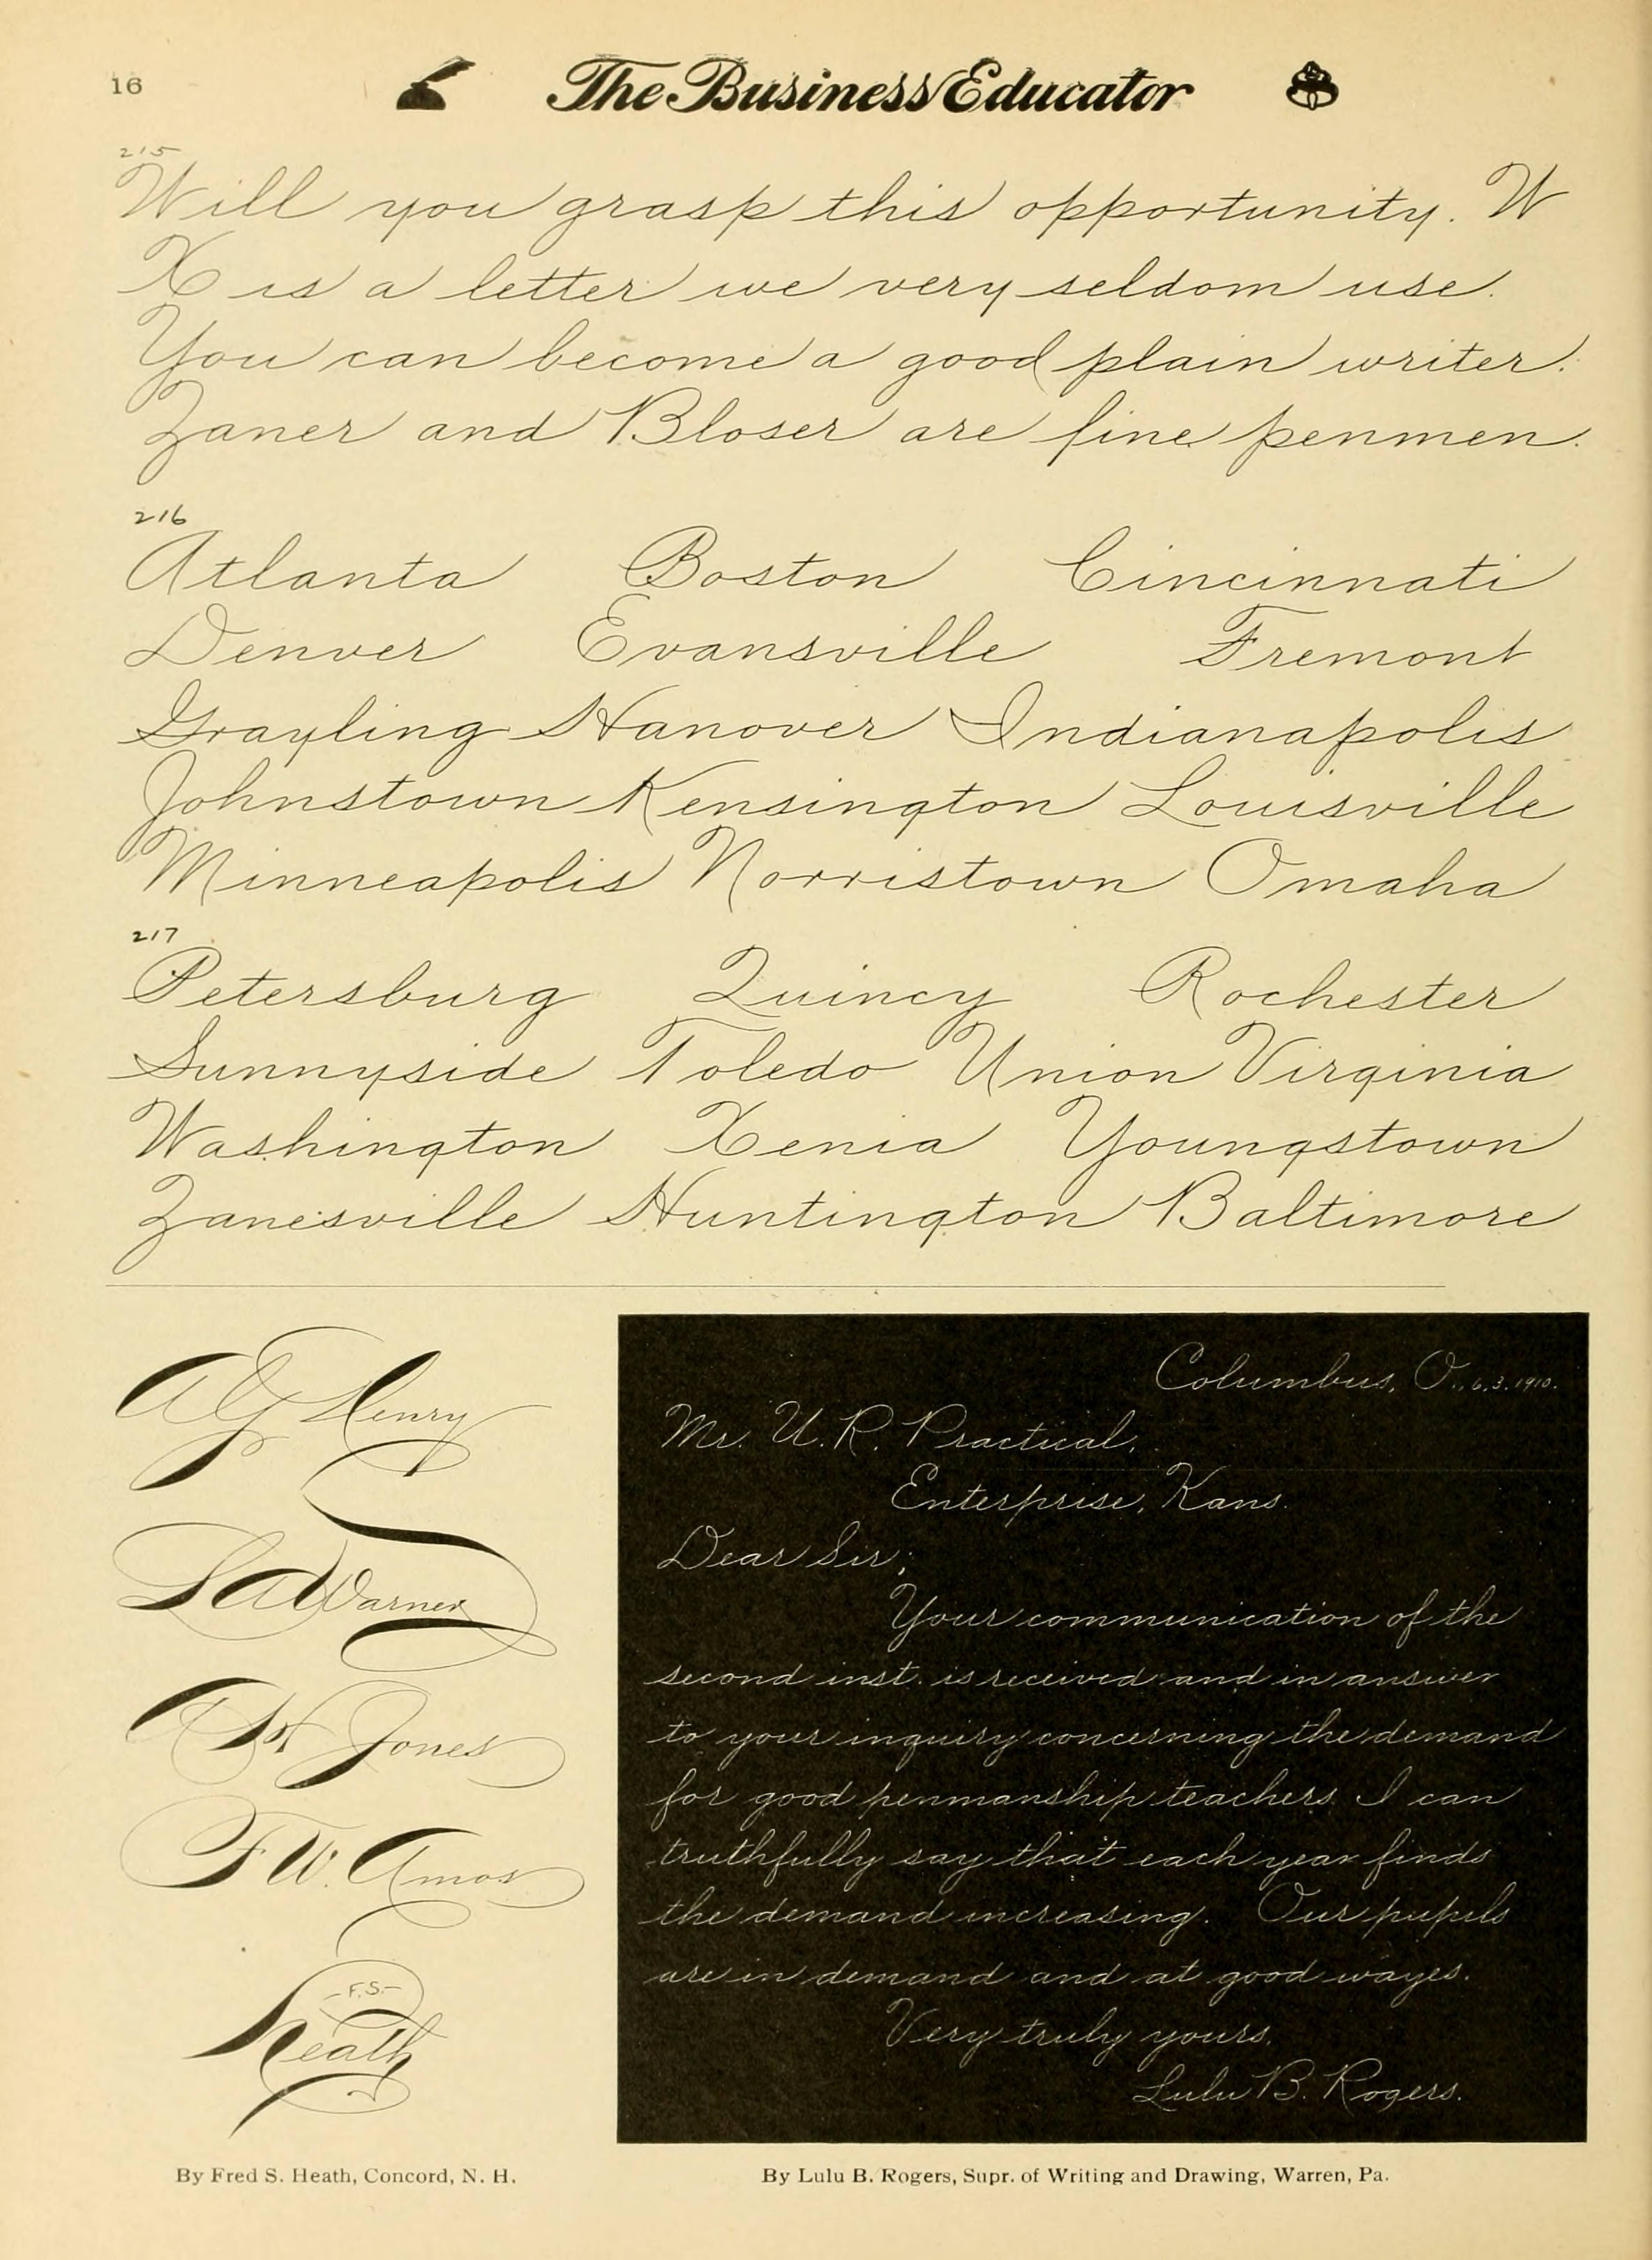 16
The Business Educator
215
Will you grasp this opportunity. W
X is a letter we very seldom use.
You can become a good plain writer.
Zaner and Bloser are fine penmen.
216
Atlanta Boston Cincinnati
Denver Evansville Fremont
Grayling Hanover Indianapolis
Johnstown Kensington Louisville
Minneapolis Norristown Omaha
217
Petersburg Quincy Rochester
Sunnyside Toledo Union Virginia
Washington Xenia Youngstown
Zanesville Huntington Baltimore
A G Henry
L A Warner
A H Jones
F W. Amos
-F.S.-
Heath
By Fred S. Heath, Concord, N. H.
Columbus, O., 6.3.1910.
Mr. U. R. Practical,
Enterprise, Kans.
Dear Sir;
Your communication of the
second inst. is received and in answer
to your inquiry concerning the demand
for good penmanship teachers I can
truthfully say that each year finds
the demand increasing. Our pupils
are in demand and at good wages.
Very truly yours,
Lulu B. Rogers.
By Lulu B. Rogers, Supr. of Writing and Drawing, Warren, Pa.